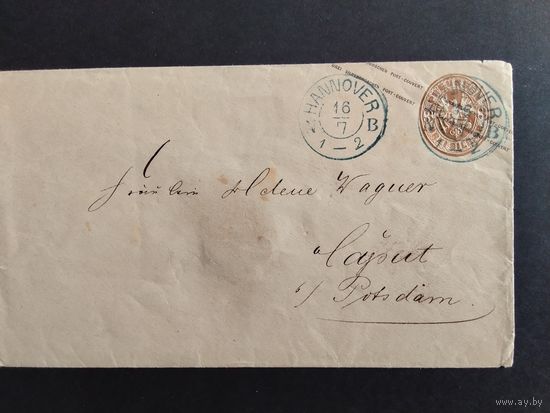 HANNOVER
16
7
1 – 2 B
POST-COUVERT
HANNOVER
B
Fräulein Helene Wagner
Caput
b/ Potsdam.
ay.by